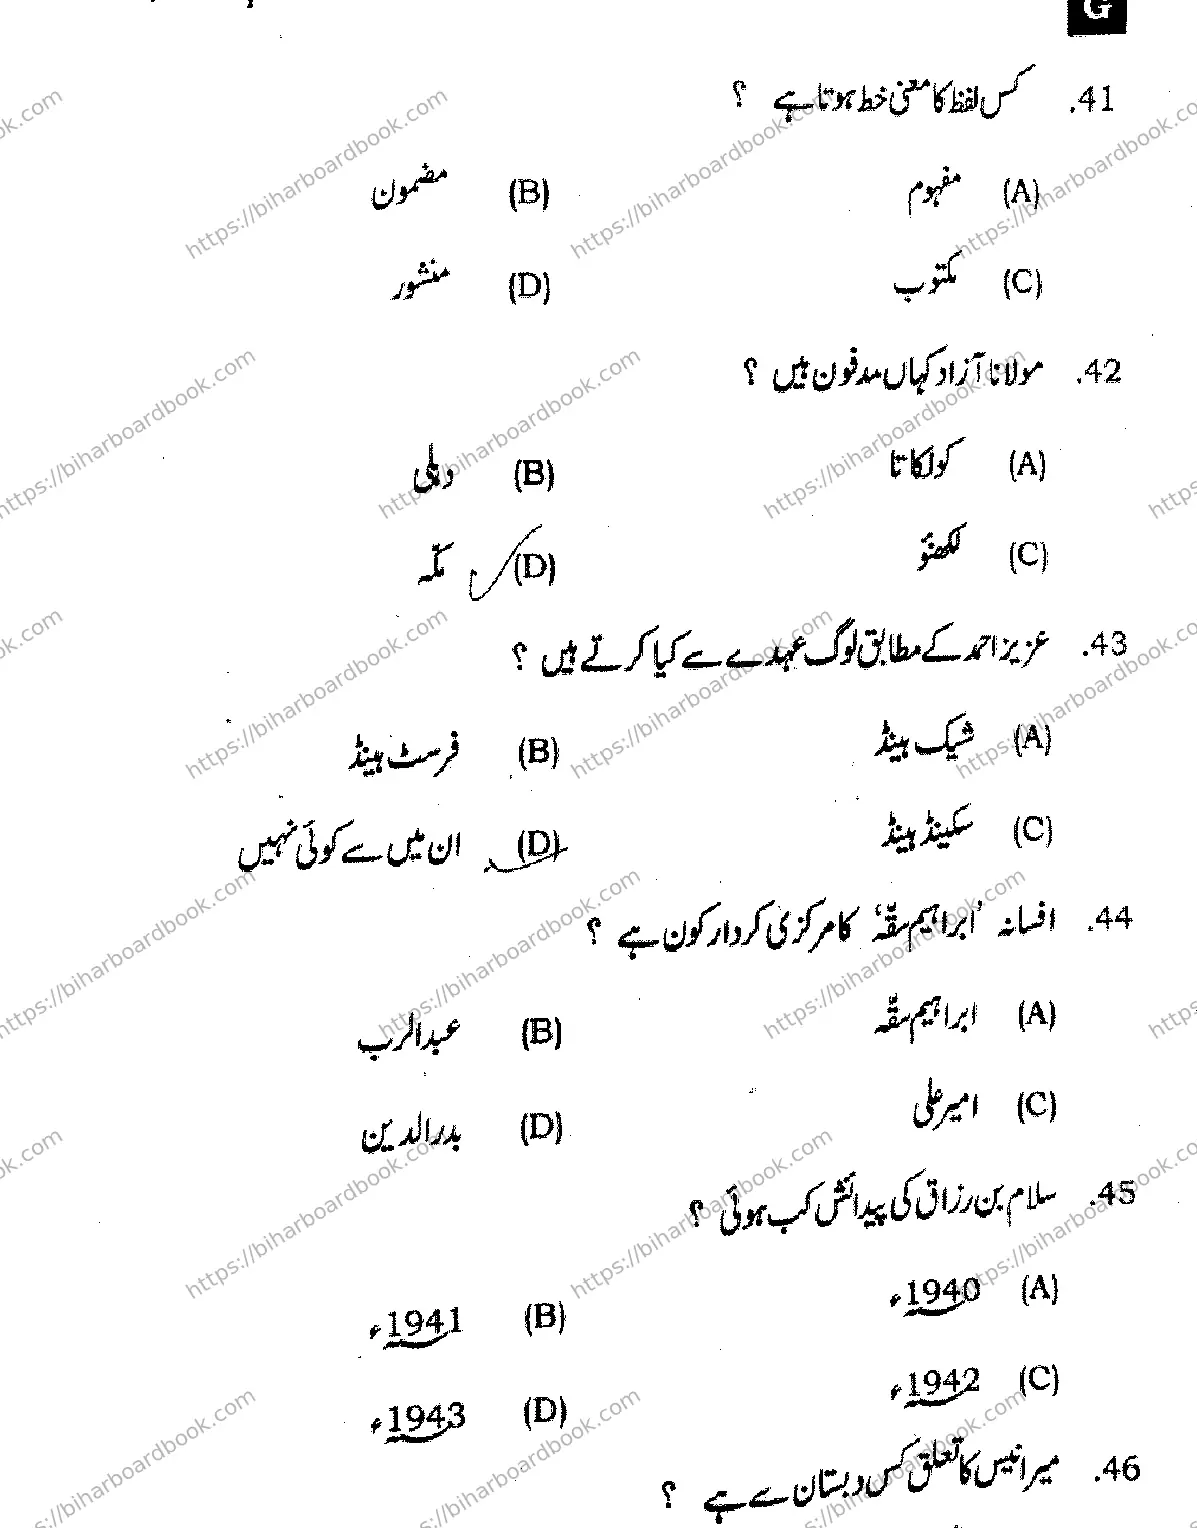 G
41. کس لفظ کا معنی خط ہوتا ہے ؟
(A) مفہوم (B) مضمون
(C) مکتوب (D) منشور
42. مولانا آزاد کہاں مدفون ہیں ؟
(A) کولکاتا (B) دہلی
(C) لکھنؤ (D) مکّہ
43. عزیز احمد کے مطابق لوگ عہدے سے کیا کرتے ہیں ؟
(A) شیک ہینڈ (B) فرسٹ ہینڈ
(C) سکینڈ ہینڈ (D) ان میں سے کوئی نہیں
44. افسانہ ’ابراہیم سقّہ‘ کا مرکزی کردار کون ہے ؟
(A) ابراہیم سقّہ (B) عبدالرب
(C) امیر علی (D) بدرالدین
45. سلام بن رزاق کی پیدائش کب ہوئی ؟
(A) 1940ء (B) 1941ء
(C) 1942ء (D) 1943ء
46. میر انیس کا تعلق کس دبستان سے ہے ؟
https://biharboardbook.com